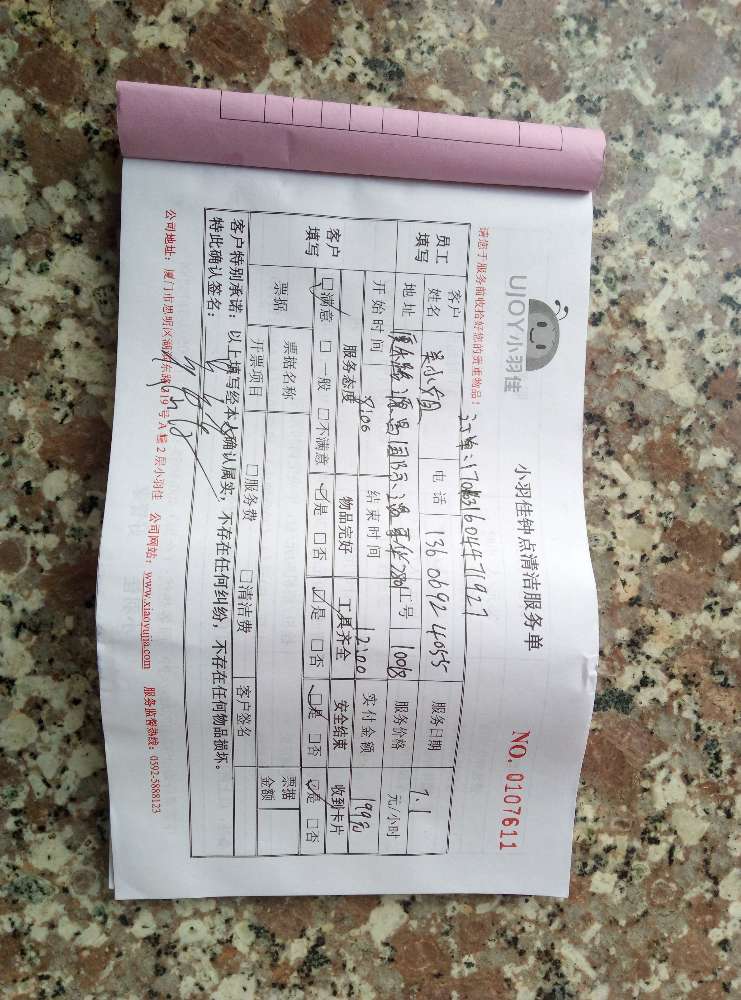 UJOY小羽佳
小羽佳钟点清洁服务单
NO. 0107611
请您于服务前收拾好您的贵重物品!
员工填写 客户姓名 电话 13606924055 服务日期 7.1
地址 工号 1008 服务价格 元/小时
开始时间 8:00 结束时间 12:00 实付金额
客户填写 服务态度 物品完好 工具齐全 安全结束 收到卡片
☑满意 □一般 □不满意 ☑是 □否 ☑是 □否 ☑是 □否 ☑是 □否
票据 票据名称 票据金额
开票项目 □服务费 □清洁费 客户签名
客户特别承诺:以上填写经本人确认属实,不存在任何纠纷,不存在任何物品损坏。
特此确认签名:
公司地址:厦门市思明区湖滨东路319号A幢2层小羽佳 公司网站:www.xiaoyujia.com 服务监督热线:0592-5888123